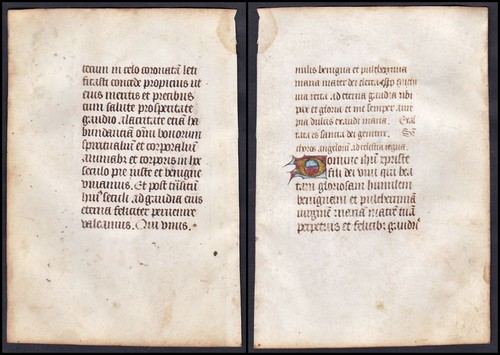 tecum in celo coronatā leti
ficasti concede propicius ut
eius meritis et precibus
cum salute prosperitate
gaudio alacritate etiā ha
bundanciā oīm bonorum
spiritualiūm et corporaliūm
animabꝰ et corporis in hoc
seculo pie iuste et benigne
viuamus. Et post
huiꝰ seculi ad gaudia eius
eterna feliciter peruenire
valeamus. Qui viuis.
milis benigna et pulcherrima
maria mater dei electa
ad eterna gaudia vbi
pax et gloria et me semper aure
pia dulcis exaudi maria. Exal
tata es sancta dei genitrix. Sup
choros angelorū ad celestia regna.
Domine ihū xp̄riste
fili dei viui qui bea
tam gloriosam humilem
benignam et pulcherrimā
virginē mariā matrē tuā
perpetuis et felicibꝰ gaudiis